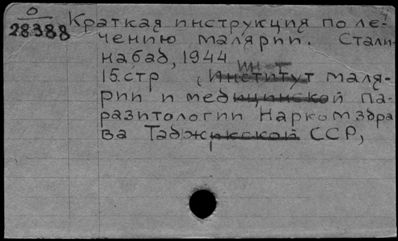 0
28388
Краткая инструкция по ле-
чению малярии. Стали-
набад, 1944
ин-т
15.стр (Институт маля-
рии и медицинской па-
разитологии Наркомздра
ва Таджикской ССР,